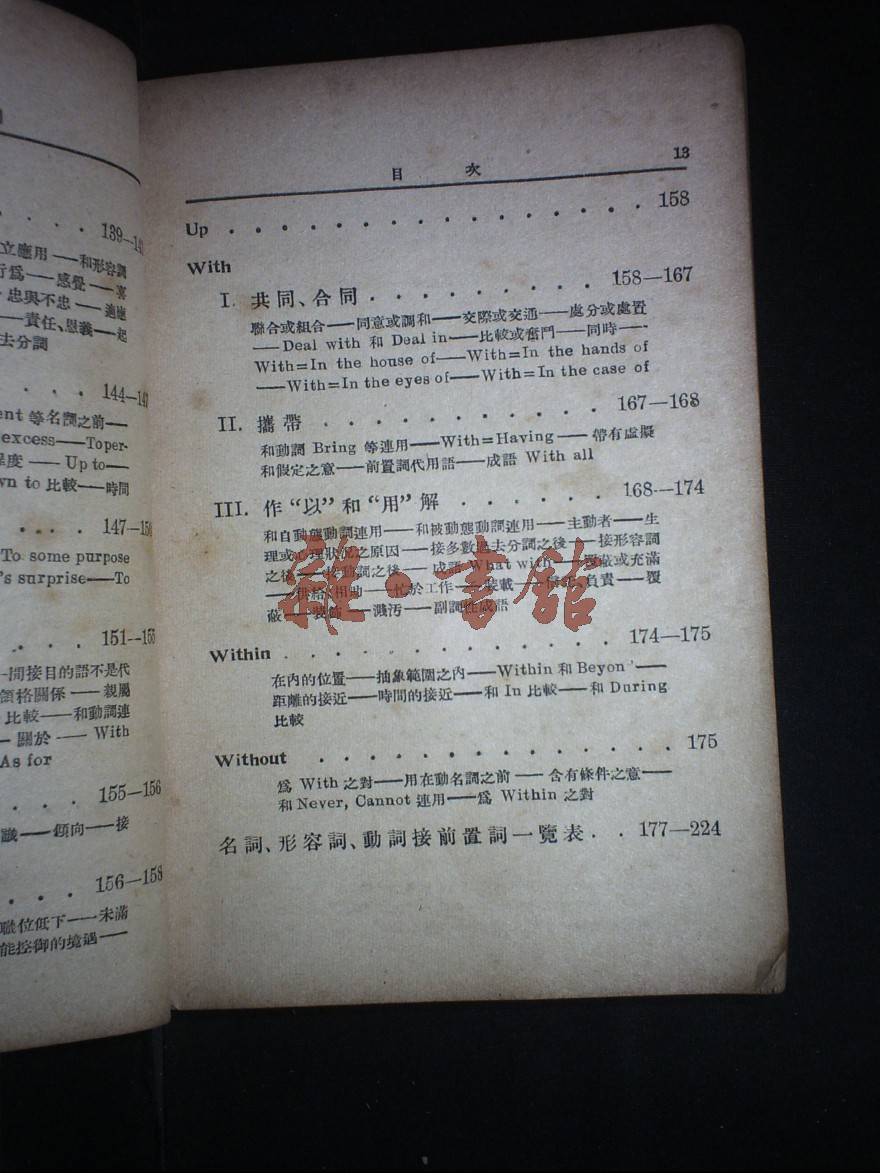 139—14
立應用——和形容詞
行爲——感覺——喜
忠與不忠——適應
——責任、恩義——起
去分詞
144—14
ent 等名詞之前——
excess——To per-
程度——Up to——
wn to 比較——時間
147—15
To some purpose
's surprise——To
151—155
間接目的語不是代
領格關係——親屬
比較——和動詞連
關於——With
As for
155—156
識——傾向——接
156—158
職位低下——未滿
能控御的境遇——
目 次 13
Up . . . . . . . . . . . . . . . . 158
With
I. 共同、合同 . . . . . . . . . . 158—167
聯合或組合——同意或調和——交際或交通——處分或處置
——Deal with 和 Deal in——比較或奮鬥——同時——
With=In the house of——With=In the hands of
——With=In the eyes of——With=In the case of
II. 攜帶 . . . . . . . . . . . 167—168
和動詞 Bring 等連用——With=Having——帶有虛擬
和假定之意——前置詞代用語——成語 With all
III. 作“以”和“用”解 . . . . . . 168—174
和自動態動詞連用——和被動態動詞連用——主動者——生
理或心理狀況之原因——接多數過去分詞之後——接形容詞
之後——接動詞之後——成語 What with——覆蔽或充滿
——供給、相助——忙於工作——裝載——信托、負責——覆
蔽——裝飾——濺汚——副詞性成語
雜·書館
Within . . . . . . . . . . . . . 174—175
在內的位置——抽象範圍之內——Within 和 Beyon——
距離的接近——時間的接近——和 In 比較——和 During
比較
Without . . . . . . . . . . . . . . 175
爲 With 之對——用在動名詞之前——含有條件之意——
和 Never, Cannot 連用——爲 Within 之對
名詞、形容詞、動詞接前置詞一覽表 . . 177—224